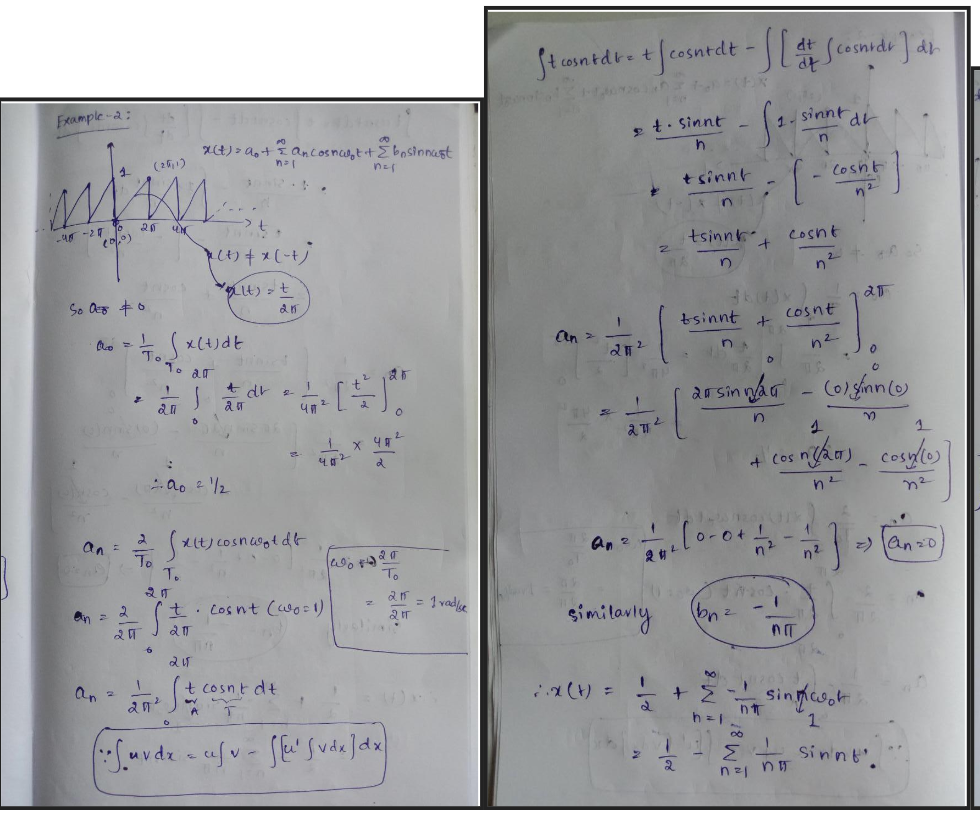 Example-2:
x(t) = a₀ + Σ_{n=1}^{∞} aₙ cosnω₀t + Σ_{n=1}^{∞} bₙ sinnω₀t
1 (2π,1)
-4π -2π 0 2π 4π t
(0,0)
x(t) ≠ x(-t)
x(t) = t/2π
So a₀ ≠ 0
a₀ = 1/T₀ ∫_{T₀} x(t) dt
= 1/2π ∫₀^{2π} t/2π dt = 1/4π² [t²/2]₀^{2π}
= 1/4π² × 4π²/2
∴ a₀ = 1/2
aₙ = 2/T₀ ∫_{T₀} x(t) cosnω₀t dt
ω₀ = 2π/T₀
= 2π/2π = 1 rad/sec
aₙ = 2/2π ∫₀^{2π} t/2π · cosnt (ω₀=1)
aₙ = 1/2π² ∫₀^{2π} t cosnt dt
A T
∵ ∫uvdx = u∫v - ∫[u' ∫vdx] dx
∫t cosnt dt = t∫cosntdt - ∫[dt/dt ∫cosntdt] dt
= t·sinnt/n - ∫1·sinnt/n dt
= tsinnt/n - [-cosnt/n²]
= tsinnt/n + cosnt/n²
aₙ = 1/2π² [tsinnt/n + cosnt/n²]₀^{2π}
= 1/2π² [2π sinn2π/n - (0)sinn(0)/n
0 0
+ cosn(2π)/n² - cosn(0)/n²]
1 1
aₙ = 1/2π² [0-0+1/n² - 1/n²] ⇒ aₙ=0
similarly bₙ = -1/nπ
∴ x(t) = 1/2 + Σ_{n=1}^{∞} -1/nπ sinnω₀t
1
= 1/2 - Σ_{n=1}^{∞} 1/nπ sinnt.